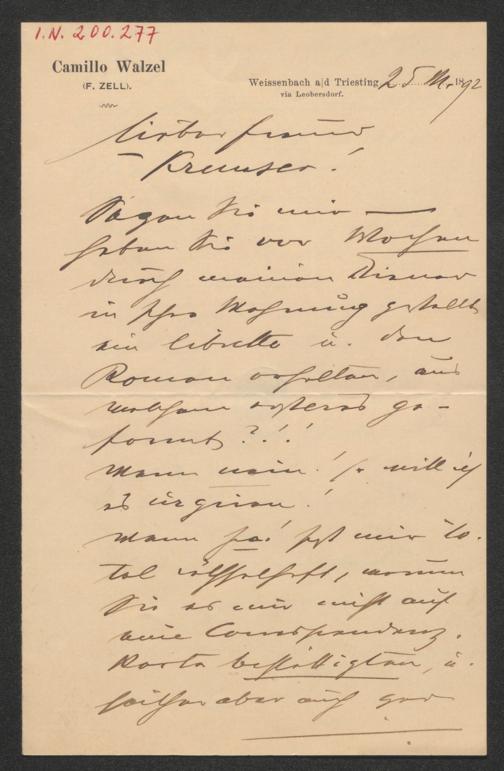 I.N. 200.277
Camillo Walzel
(F. ZELL).
Weissenbach a/d Triesting, 25. M. 1892
via Leobersdorf.
Lieber Freund
Kremser!
Sagen Sie mir —
haben Sie vor Wochen
durch meinen Diener
in Ihre Wohnung gestellt
ein libretto u. den
Roman erhalten, aus
welchem ersteres ge-
formt?!!
Wenn nein! so will ich
es urgiren!
Wenn ja! ist mir to-
tal räthselhaft, warum
Sie es mir nicht auf
eine Correspondenz-
Karte bestättigten, u.
seither aber auch gar